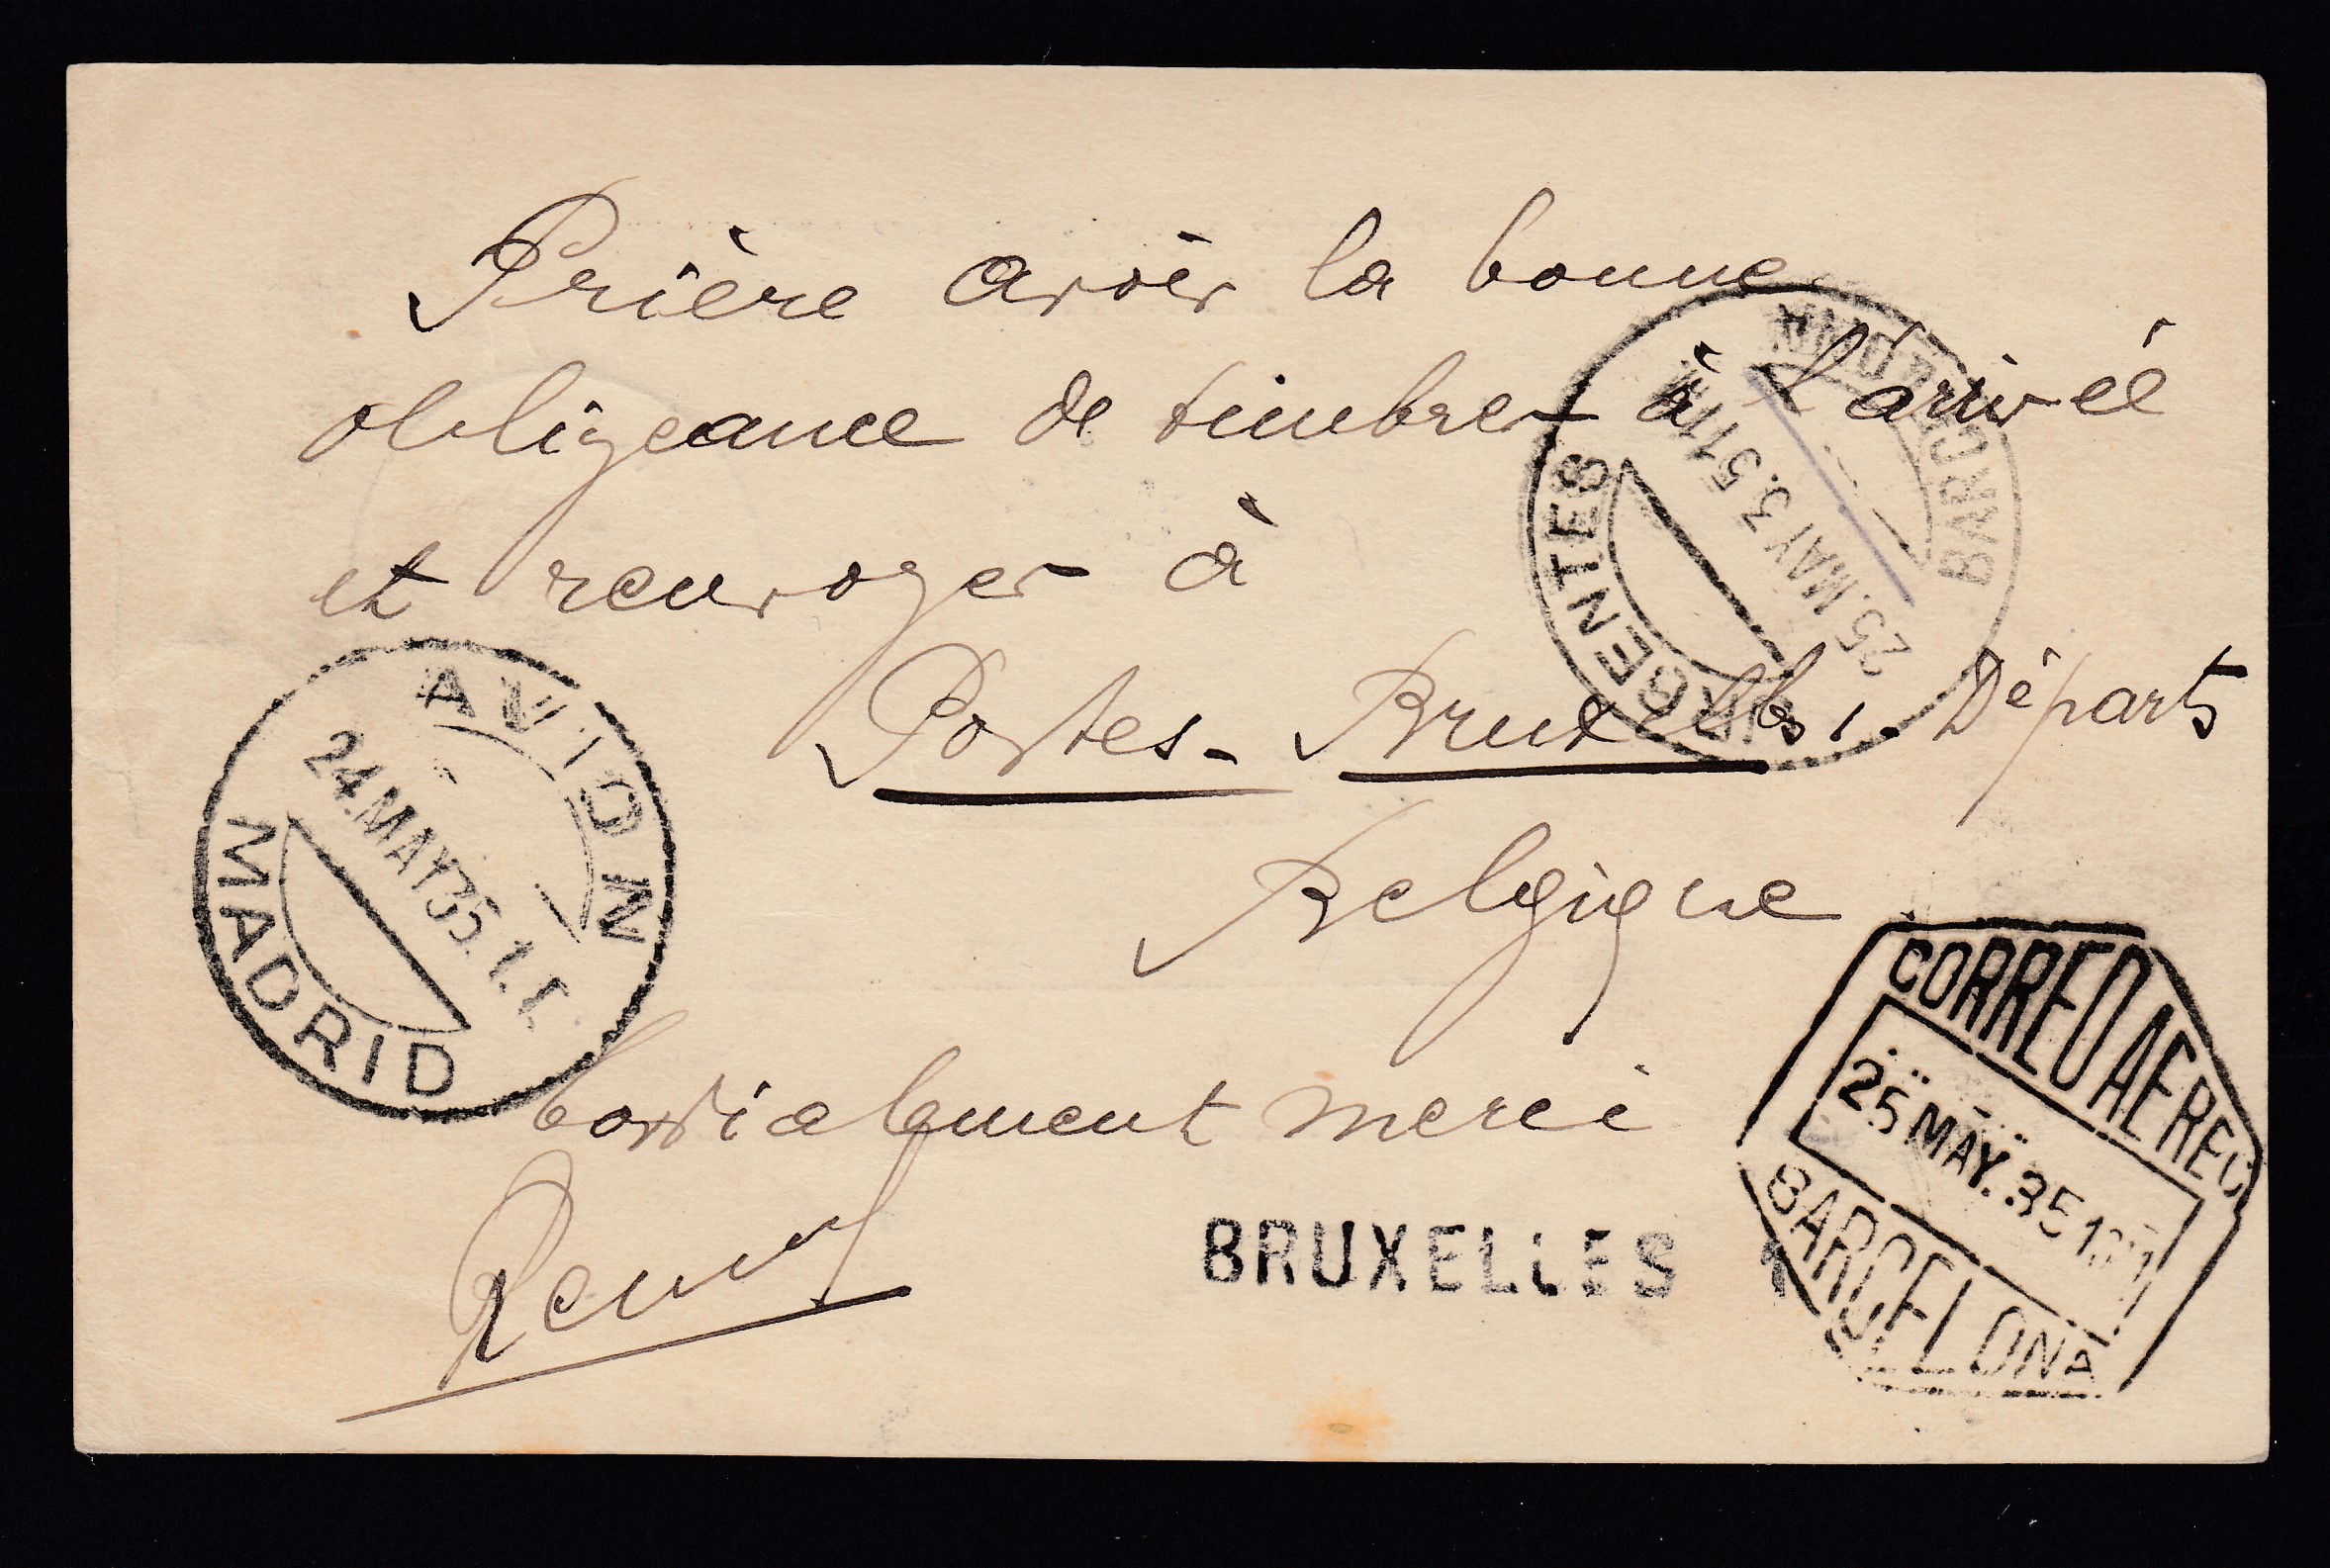 Prière avoir la bonne
obligeance de timbrer à l'arrivée
et renvoyer à
Postes - Bruxelles 1. Départs
Belgique
Cordialement merci
BRUXELLES 1
AVION
24.MAY35.1
MADRID
BARCELONA
25.MAY 3.5 11M
URGENTES
CORREO AEREO
25 MAY. 35 1
BARCELONA